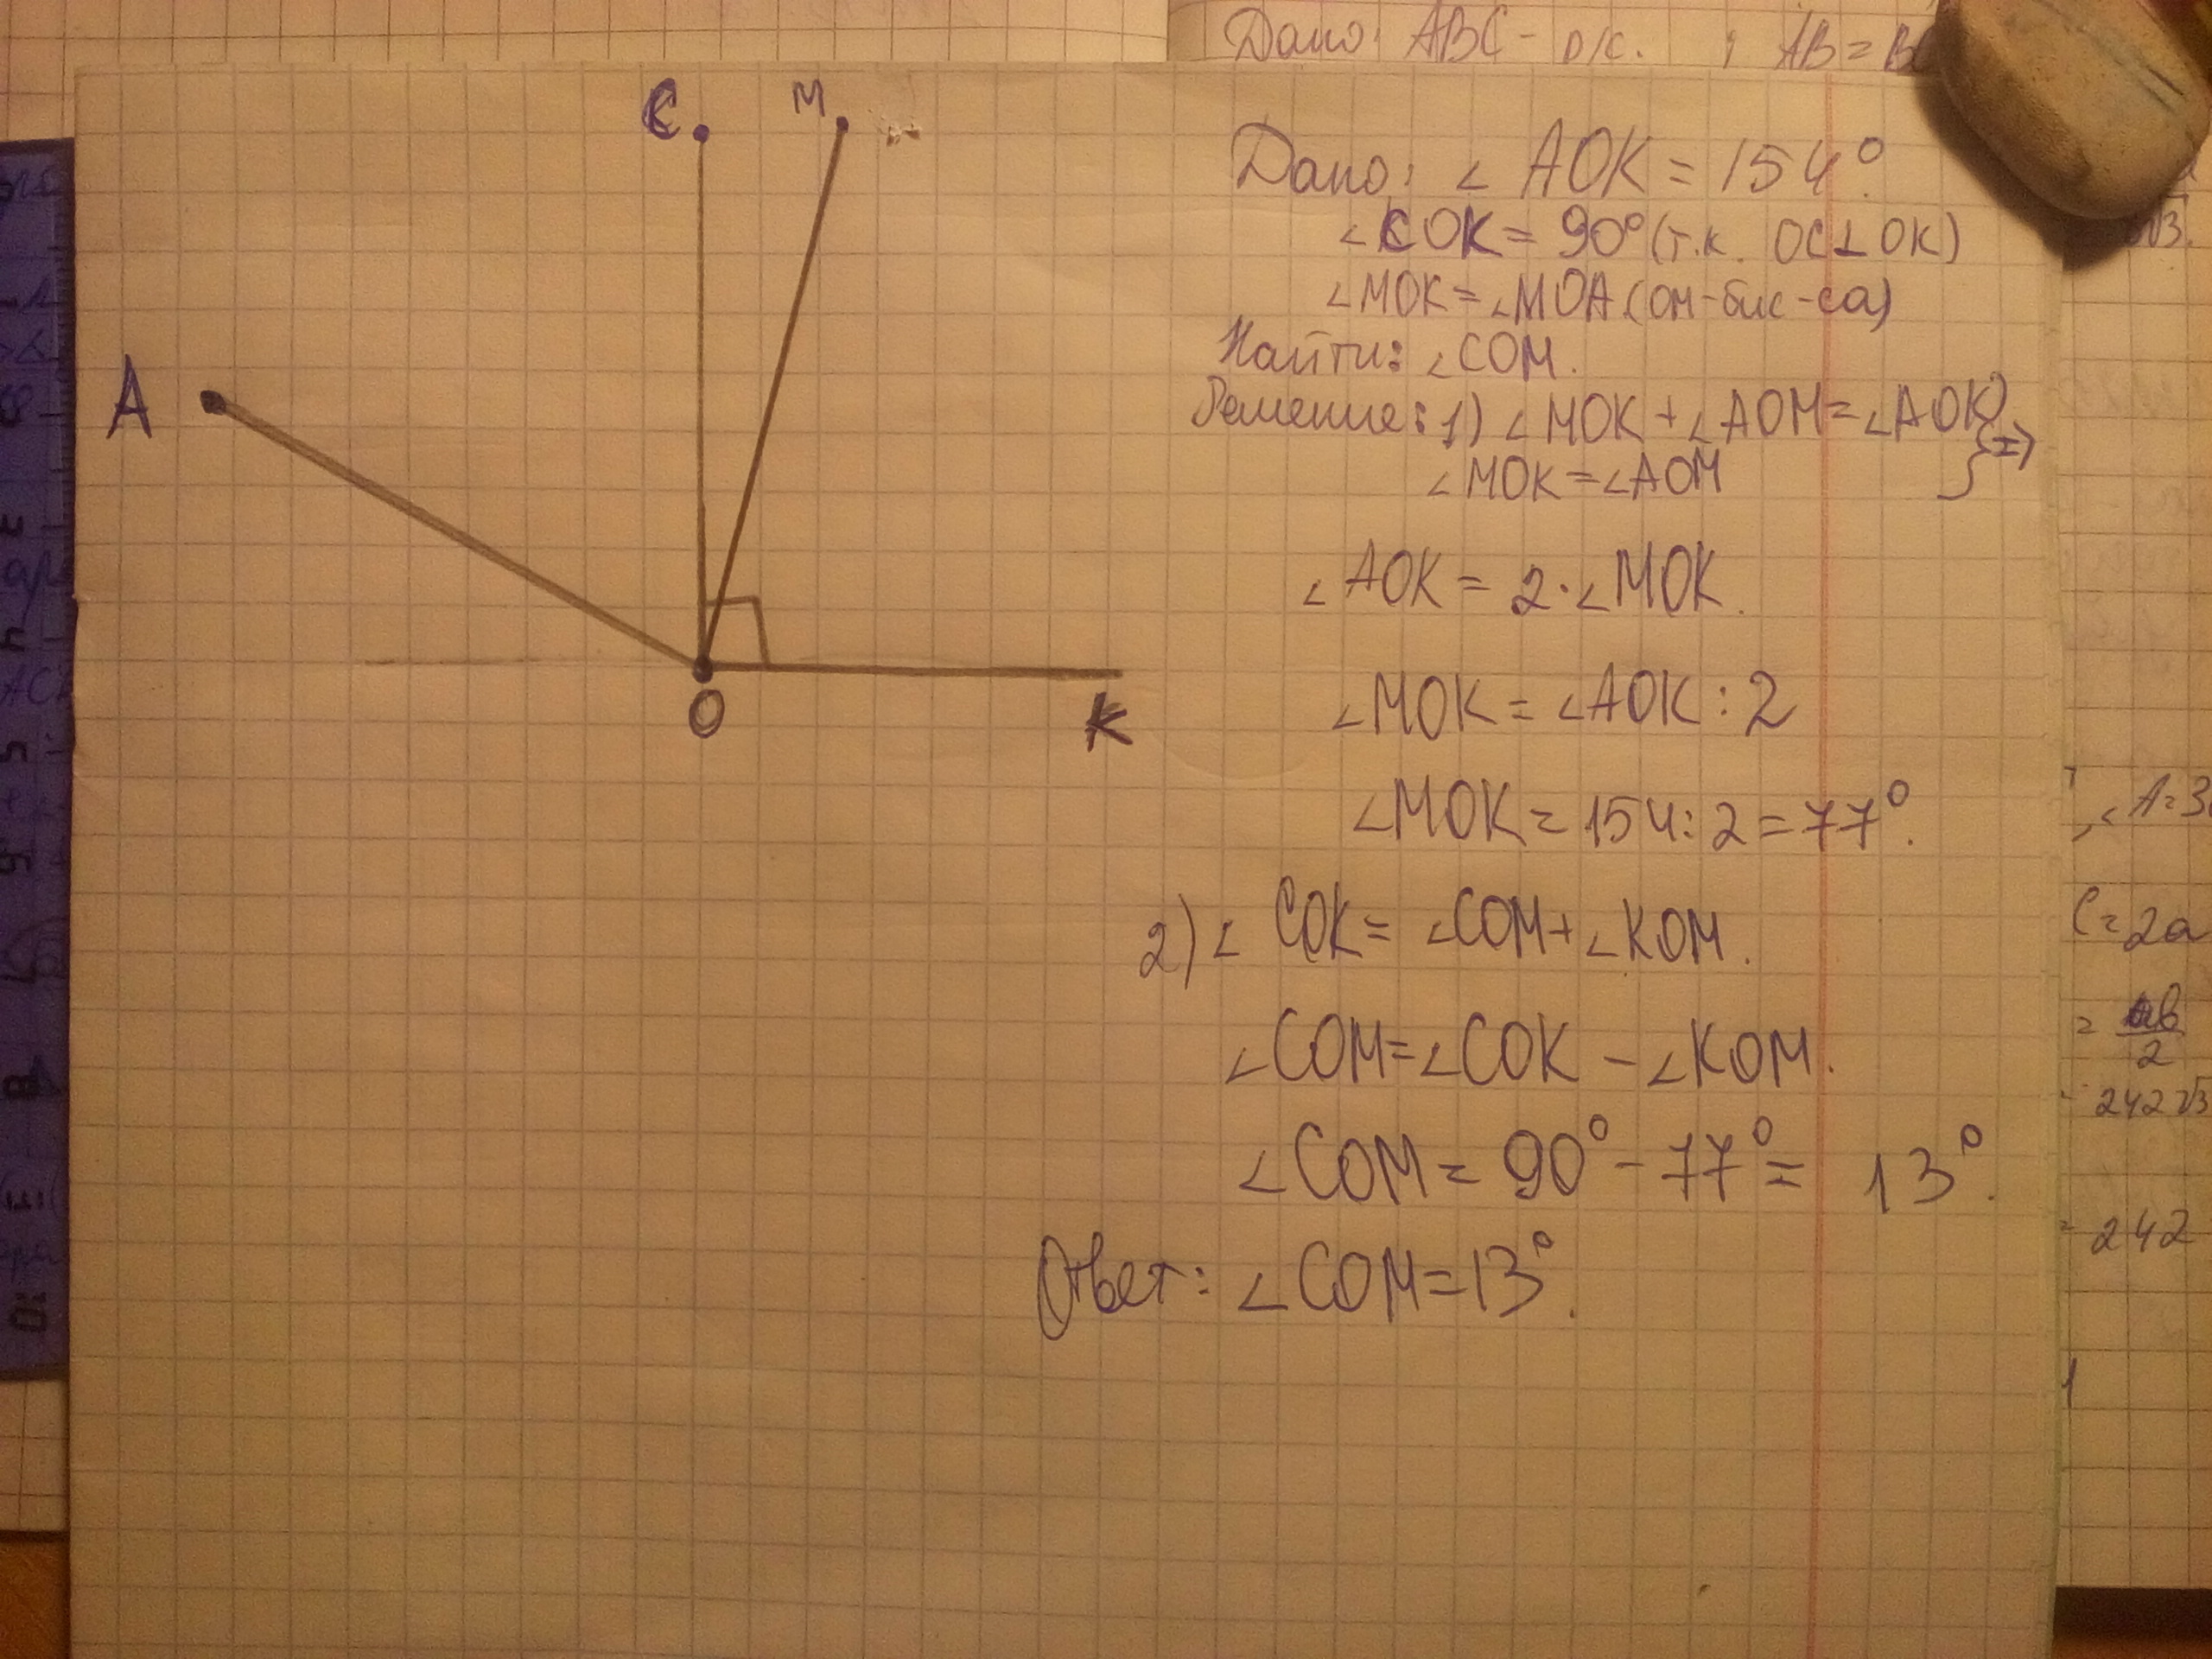 Дано: ABC - р/с. ; AB = BC
C
M
A
O
K
Дано: ∠ AOK = 154°.
∠COK = 90° (т.к. OC⊥OK)
∠MOK = ∠MOA (OM-бис-са)
Найти: ∠COM.
Решение: 1) ∠MOK + ∠AOM = ∠AOK } =>
∠MOK = ∠AOM
∠AOK = 2·∠MOK.
∠MOK = ∠AOK : 2
∠MOK = 154 : 2 = 77°.
2) ∠ COK = ∠COM + ∠KOM.
∠COM = ∠COK - ∠KOM.
∠COM = 90° - 77° = 13°.
Ответ: ∠COM = 13°.
√3.
, ∠A=3
C=2a
= ab/2
242√3
= 242